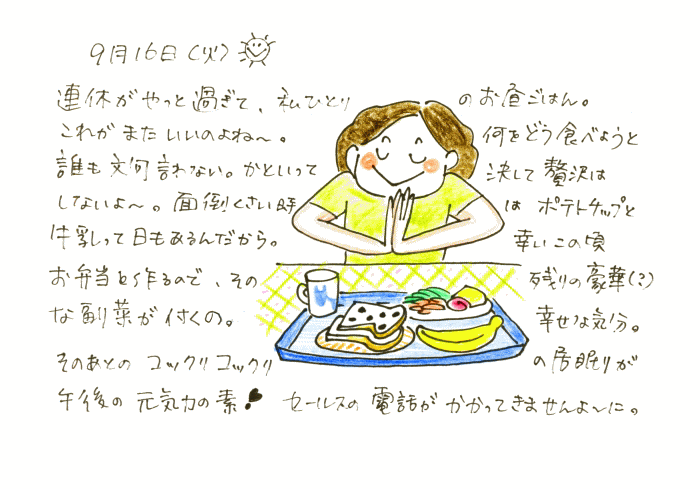 9月16日(火)
連休がやっと過ぎて、私ひとりのお昼ごはん。
これがまたいいのよね〜。何をどう食べようと
誰も文句言わない。かといって決して贅沢は
しないよ〜。面倒くさい時はポテトチップと
牛乳って日もあるんだから。幸いこの頃
お弁当も作るので、その残りの豪華(?)
な副菜が付くの。幸せな気分。
そのあとのコックリコックリの居眠りが
午後の元気力の素! セールスの電話がかかってきませんよ〜に。